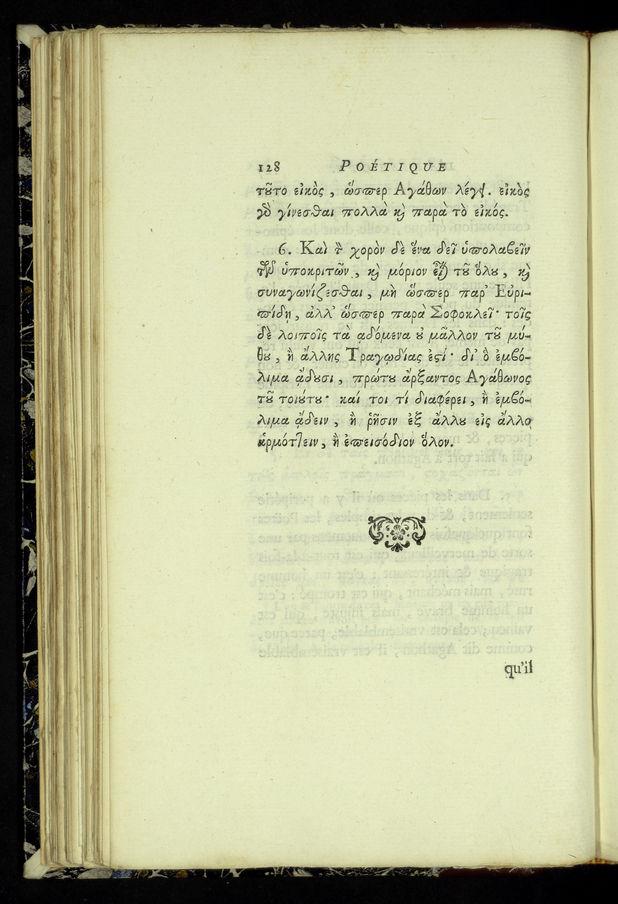 128 POÉTIQUE
τοῦτο εἰκὸς, ὥσπερ Αγάθων λέγει. εἰκὸς
γὰρ γίνεσθαι πολλὰ καὶ παρὰ τὸ εἰκός.
6. Καὶ τὸν χορὸν δὲ ἕνα δεῖ ὑπολαβεῖν
τῶν ὑποκριτῶν, καὶ μόριον εἶναι τοῦ ὅλου, καὶ
συναγωνίζεσθαι, μὴ ὥσπερ παρ' Εὐρι-
πίδῃ, ἀλλ' ὥσπερ παρὰ Σοφοκλεῖ· τοῖς
δὲ λοιποῖς τὰ ᾀδόμενα οὐ μᾶλλον τοῦ μύ-
θου, ἢ ἄλλης Τραγῳδίας ἐστί· δι' ὃ ἐμβό-
λιμα ᾄδουσι, πρώτου ἄρξαντος Αγάθωνος
τοῦ τοιούτου· καί τοι τί διαφέρει, ἢ ἐμβό-
λιμα ᾄδειν, ἢ ῥῆσιν ἐξ ἄλλου εἰς ἄλλο
ἁρμόττειν, ἢ ἐπεισόδιον ὅλον.
qu'il